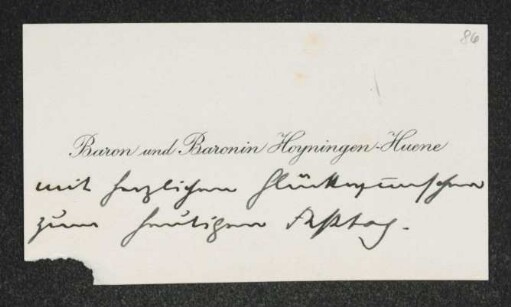 86
Baron und Baronin Hoyningen-Huene
mit herzlichen Glückwünschen
zum heutigen Festtag.